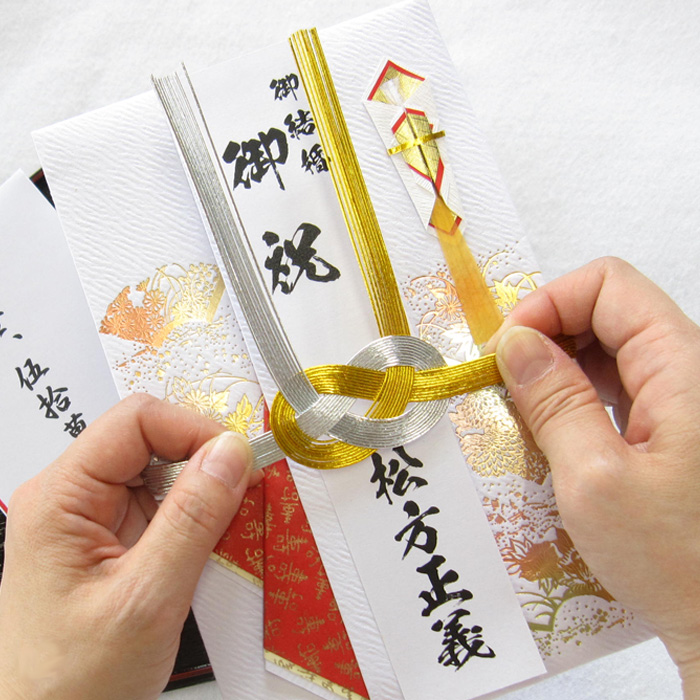 御結婚
御祝
松方正義
伍拾萬